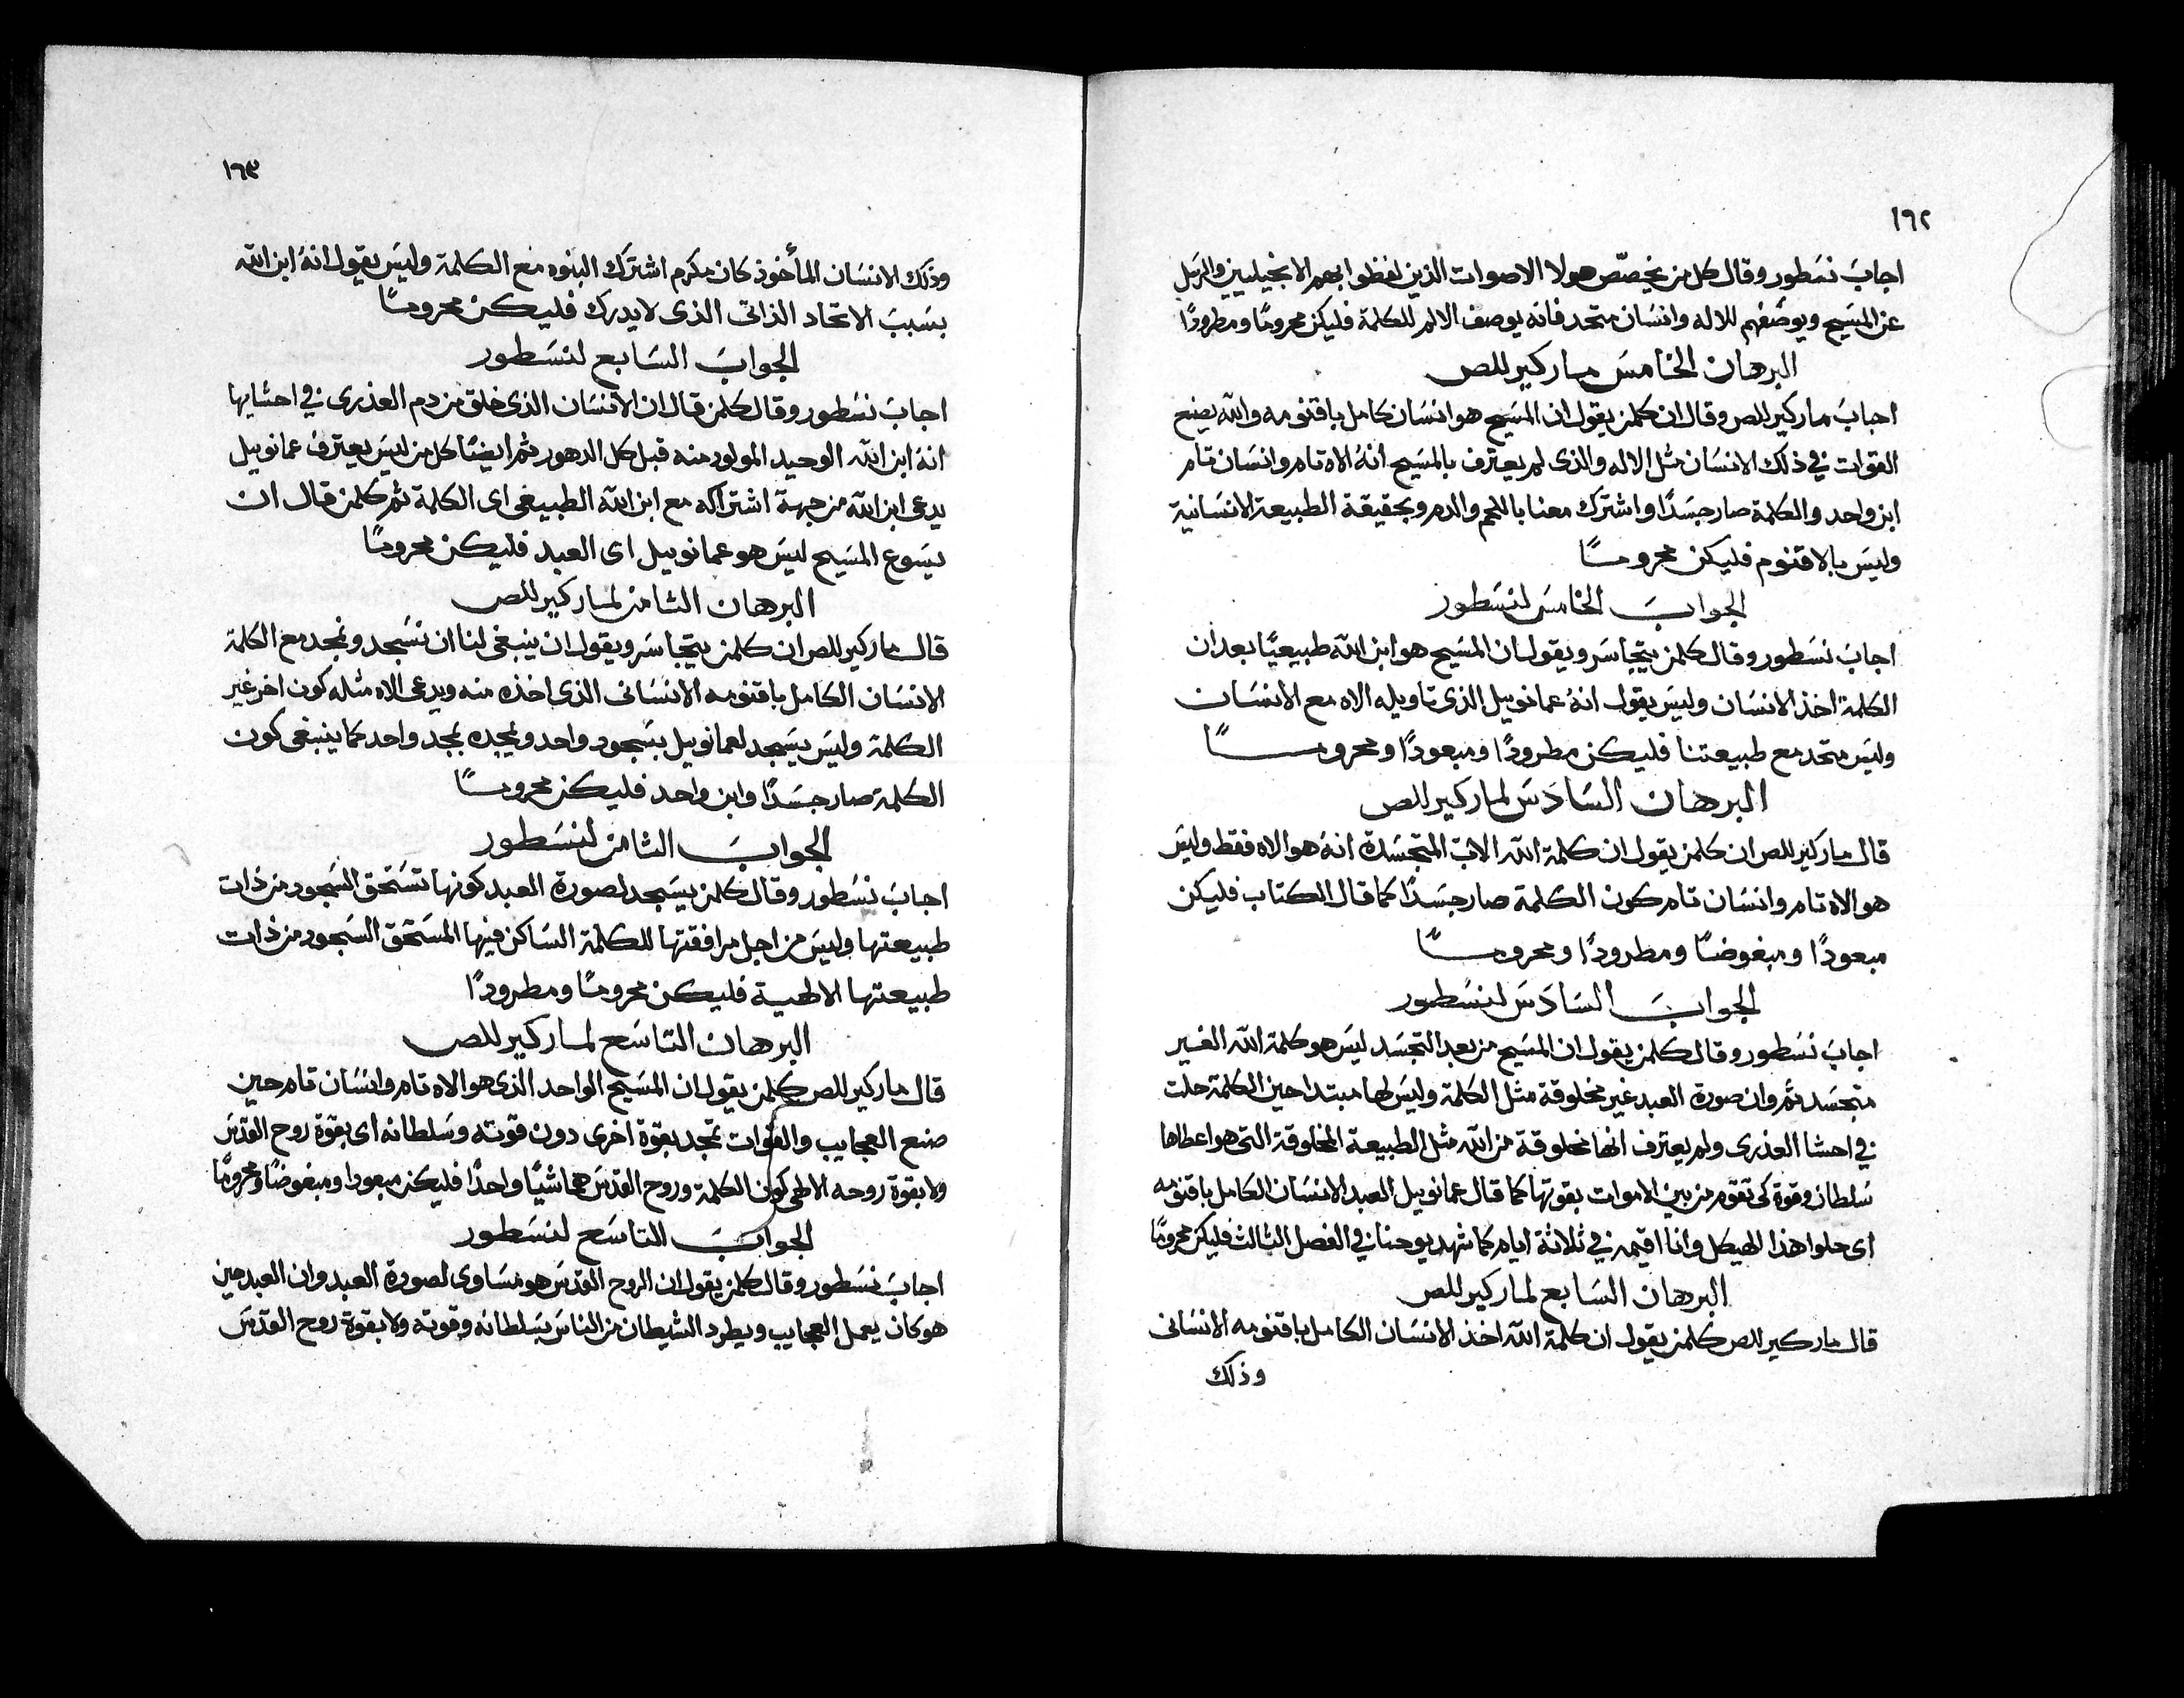 ١٦٢
اجاب نسطور وقال كل من يخصّص هولا الاصوات الذين لفظوا بهم الانجيليين والرسل
عن المسيح ويوضعهم للاله وانسان متحد فانه يوصف الالم للكلمة فليكن محرومًا ومطرودًا
البرهان الخامس مار كيرللص
اجاب مار كيرللص وقال ان كلمن يقول ان المسيح هو انسان كامل باقنومه والله يصنع
القوات في ذلك الانسان مثل الاله والذى لم يعترف بالمسيح انهُ الاه تام وانسان تام
ابن واحد والكلمة صار جسدًا واشترك معنا باللحم والدم وبحقيقة الطبيعة الانسانية
وليس بالاقنوم فليكن محرومــًا
الجواب الخامس لنسطور
اجاب نسطور وقال كلمن يتجاسر ويقول ان المسيح هو ابن الله طبيعيًا بعد ان
الكلمة اخذ الانسان وليس يقول انهُ عمانوييل الذى تاويله الاه مع الانسان
وليس متحد مع طبيعتنا فليكن مطرودًا ومبعودًا ومحرومــًا
البرهان السادس لمار كيرللص
قال مار كيرللص ان كلمن يقول ان كلمة الله الاب المتجسدة انهُ هو الاه فقط وليس
هو الاه تام وانسان تام كون الكلمة صار جسدًا كما قال الكتاب فليكن
مبعودًا ومبغوضًا ومطرودًا ومحرومــًا
الجواب السادس لنسطور
اجاب نسطور وقال كلمن يقول ان المسيح من بعد التجسد ليس هو كلمة الله الغير
متجسد ثم وان صورة العبد غير مخلوقة مثل الكلمة وليس لها مبتدا حين الكلمة حلت
في احشا العذرى ولم يعترف انها مخلوقة من الله مثل الطبيعة المخلوقة التى هو اعطاها
سلطان وقوة كى تقوم من بين الاموات بقوتها كما قال عمانوييل العبد الانسان الكامل باقنومه
اى حلوا هذا الهيكل وانا اقيمه في ثلاثة ايام كما شهد يوحنا في الفصل الثالث فليكن محرومًا
البرهان السابع لمار كيرللص
قال مار كيرللص كلمن يقول ان كلمة الله اخذ الانسان الكامل باقنومه الانسانى
وذلك
١٦٣
وذلك الانسان المأخوذ كان مكرم اشترك البنوه مع الكلمة وليس يقول انهُ ابن الله
بسبب الاتحاد الذاتى الذى لا يدرك فليكن محرومــًا
الجواب السابع لنسطور
اجاب نسطور وقال كلمن قال ان الانسان الذى خلق من دم العذرى في احشايها
انهُ ابن الله الوحيد المولود منه قبل كل الدهور ثم ايضًا كل من ليس يعترف عمانوييل
يدعى ابن الله من جهة اشتراكه مع ابن الله الطبيعى اى الكلمة ثم كلمن قال ان
يسوع المسيح ليس هو عمانوييل اى العبد فليكن محرومــًا
البرهان الثامن لمار كيرللص
قال مار كيرللص ان كلمن يتجاسر ويقول ان ينبغى لنا ان نسجد ونمجد مع الكلمة
الانسان الكامل باقنومه الانسانى الذى اخذه منه ويدعى الاه مثله كون اخر غير
الكلمة وليس يسجد لعمانوييل بسجود واحد ويمجده بمجد واحد كما ينبغى كون
الكلمة صار جسدًا وابن واحد فليكن محرومــًا
الجواب الثامن لنسطور
اجاب نسطور وقال كلمن يسجد لصورة العبد كونها تستحق السجود من ذات
طبيعتها وليس من اجل مرافقتها للكلمة الساكن فيها المستحق السجود من ذات
طبيعتها الالهية فليكن محرومًا ومطرودًا
البرهان التاسع لمار كيرللص
قال مار كيرللص كلمن يقول ان المسيح الواحد الذى هو الاه تام وانسان تام حين
صنع العجايب والقوات تمجد بقوة اخرى دون قوته وسلطانه اى بقوة روح القدس
ولا بقوة روحه الالهى كون الكلمة وروح القدس هما شيًا واحدًا فليكن مبعودا ومبغوضًا ومحرومًا
الجواب التاسع لنسطور
اجاب نسطور وقال كلمن يقول ان الروح القدس هو مساوى لصورة العبد وان العبد حين
هو كان يعمل العجايب ويطرد الشيطان من الناس بسلطانه وقوته ولا بقوة روح القدس